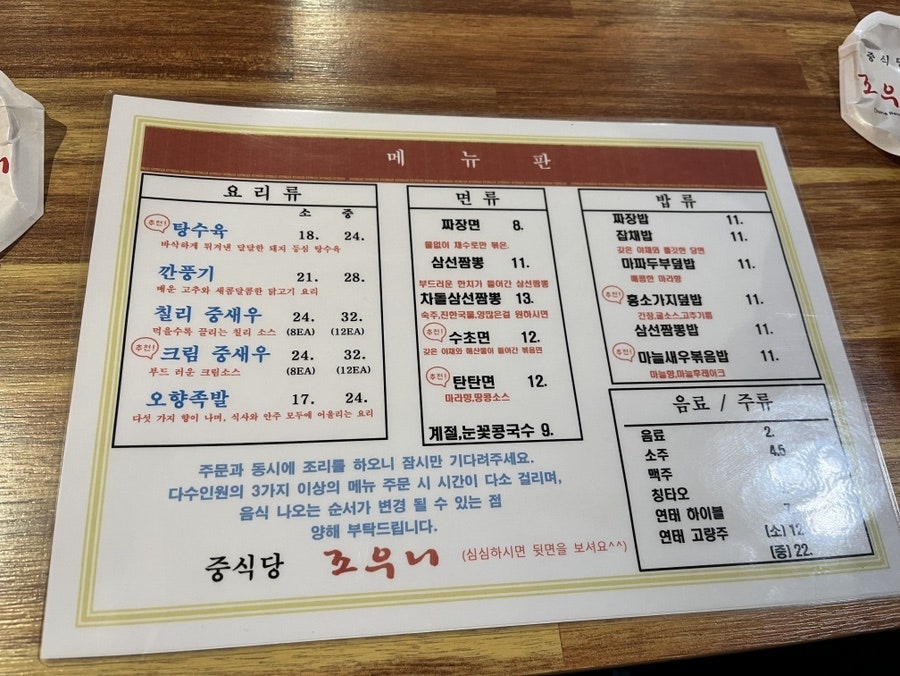 메 뉴 판
요 리 류
소 중
추천! 탕수육 18. 24.
바삭하게 튀겨낸 달달한 돼지 등심 탕수육
깐풍기 21. 28.
매운 고추와 새콤달콤한 닭고기 요리
칠리 중새우 24. 32.
먹을수록 끌리는 칠리 소스 (8EA) (12EA)
추천! 크림 중새우 24. 32.
부드 러운 크림소스 (8EA) (12EA)
오향족발 17. 24.
다섯 가지 향이 나며, 식사와 안주 모두에 어울리는 요리
면 류
짜장면 8.
물없이 채수로만 볶은.
삼선짬뽕 11.
부드러운 한치가 들어간 삼선짬뽕
차돌삼선짬뽕 13.
숙주,진한국물,양많은걸 원하시면
추천! 수초면 12.
갖은 야채와 해산물이 들어간 볶음면
추천! 탄탄면 12.
마라향,땅콩소스
계절,눈꽃콩국수 9.
밥 류
짜장밥 11.
잡채밥 11.
갖은 야채와 쫄깃한 당면
마파두부덮밥 11.
매콤한 마라향
추천! 홍소가지덮밥 11.
간장,굴소스,고추기름
삼선짬뽕밥 11.
추천! 마늘새우볶음밥 11.
마늘향,마늘후레이크
음료 / 주류
음료 2.
소주 4.5
맥주
칭타오
연태 하이볼
연태 고량주 (소) 12
(중) 22.
주문과 동시에 조리를 하오니 잠시만 기다려주세요.
다수인원의 3가지 이상의 메뉴 주문 시 시간이 다소 걸리며,
음식 나오는 순서가 변경 될 수 있는 점
양해 부탁드립니다.
중식당 조우니 (심심하시면 뒷면을 보셔요^^)
중식당
조우